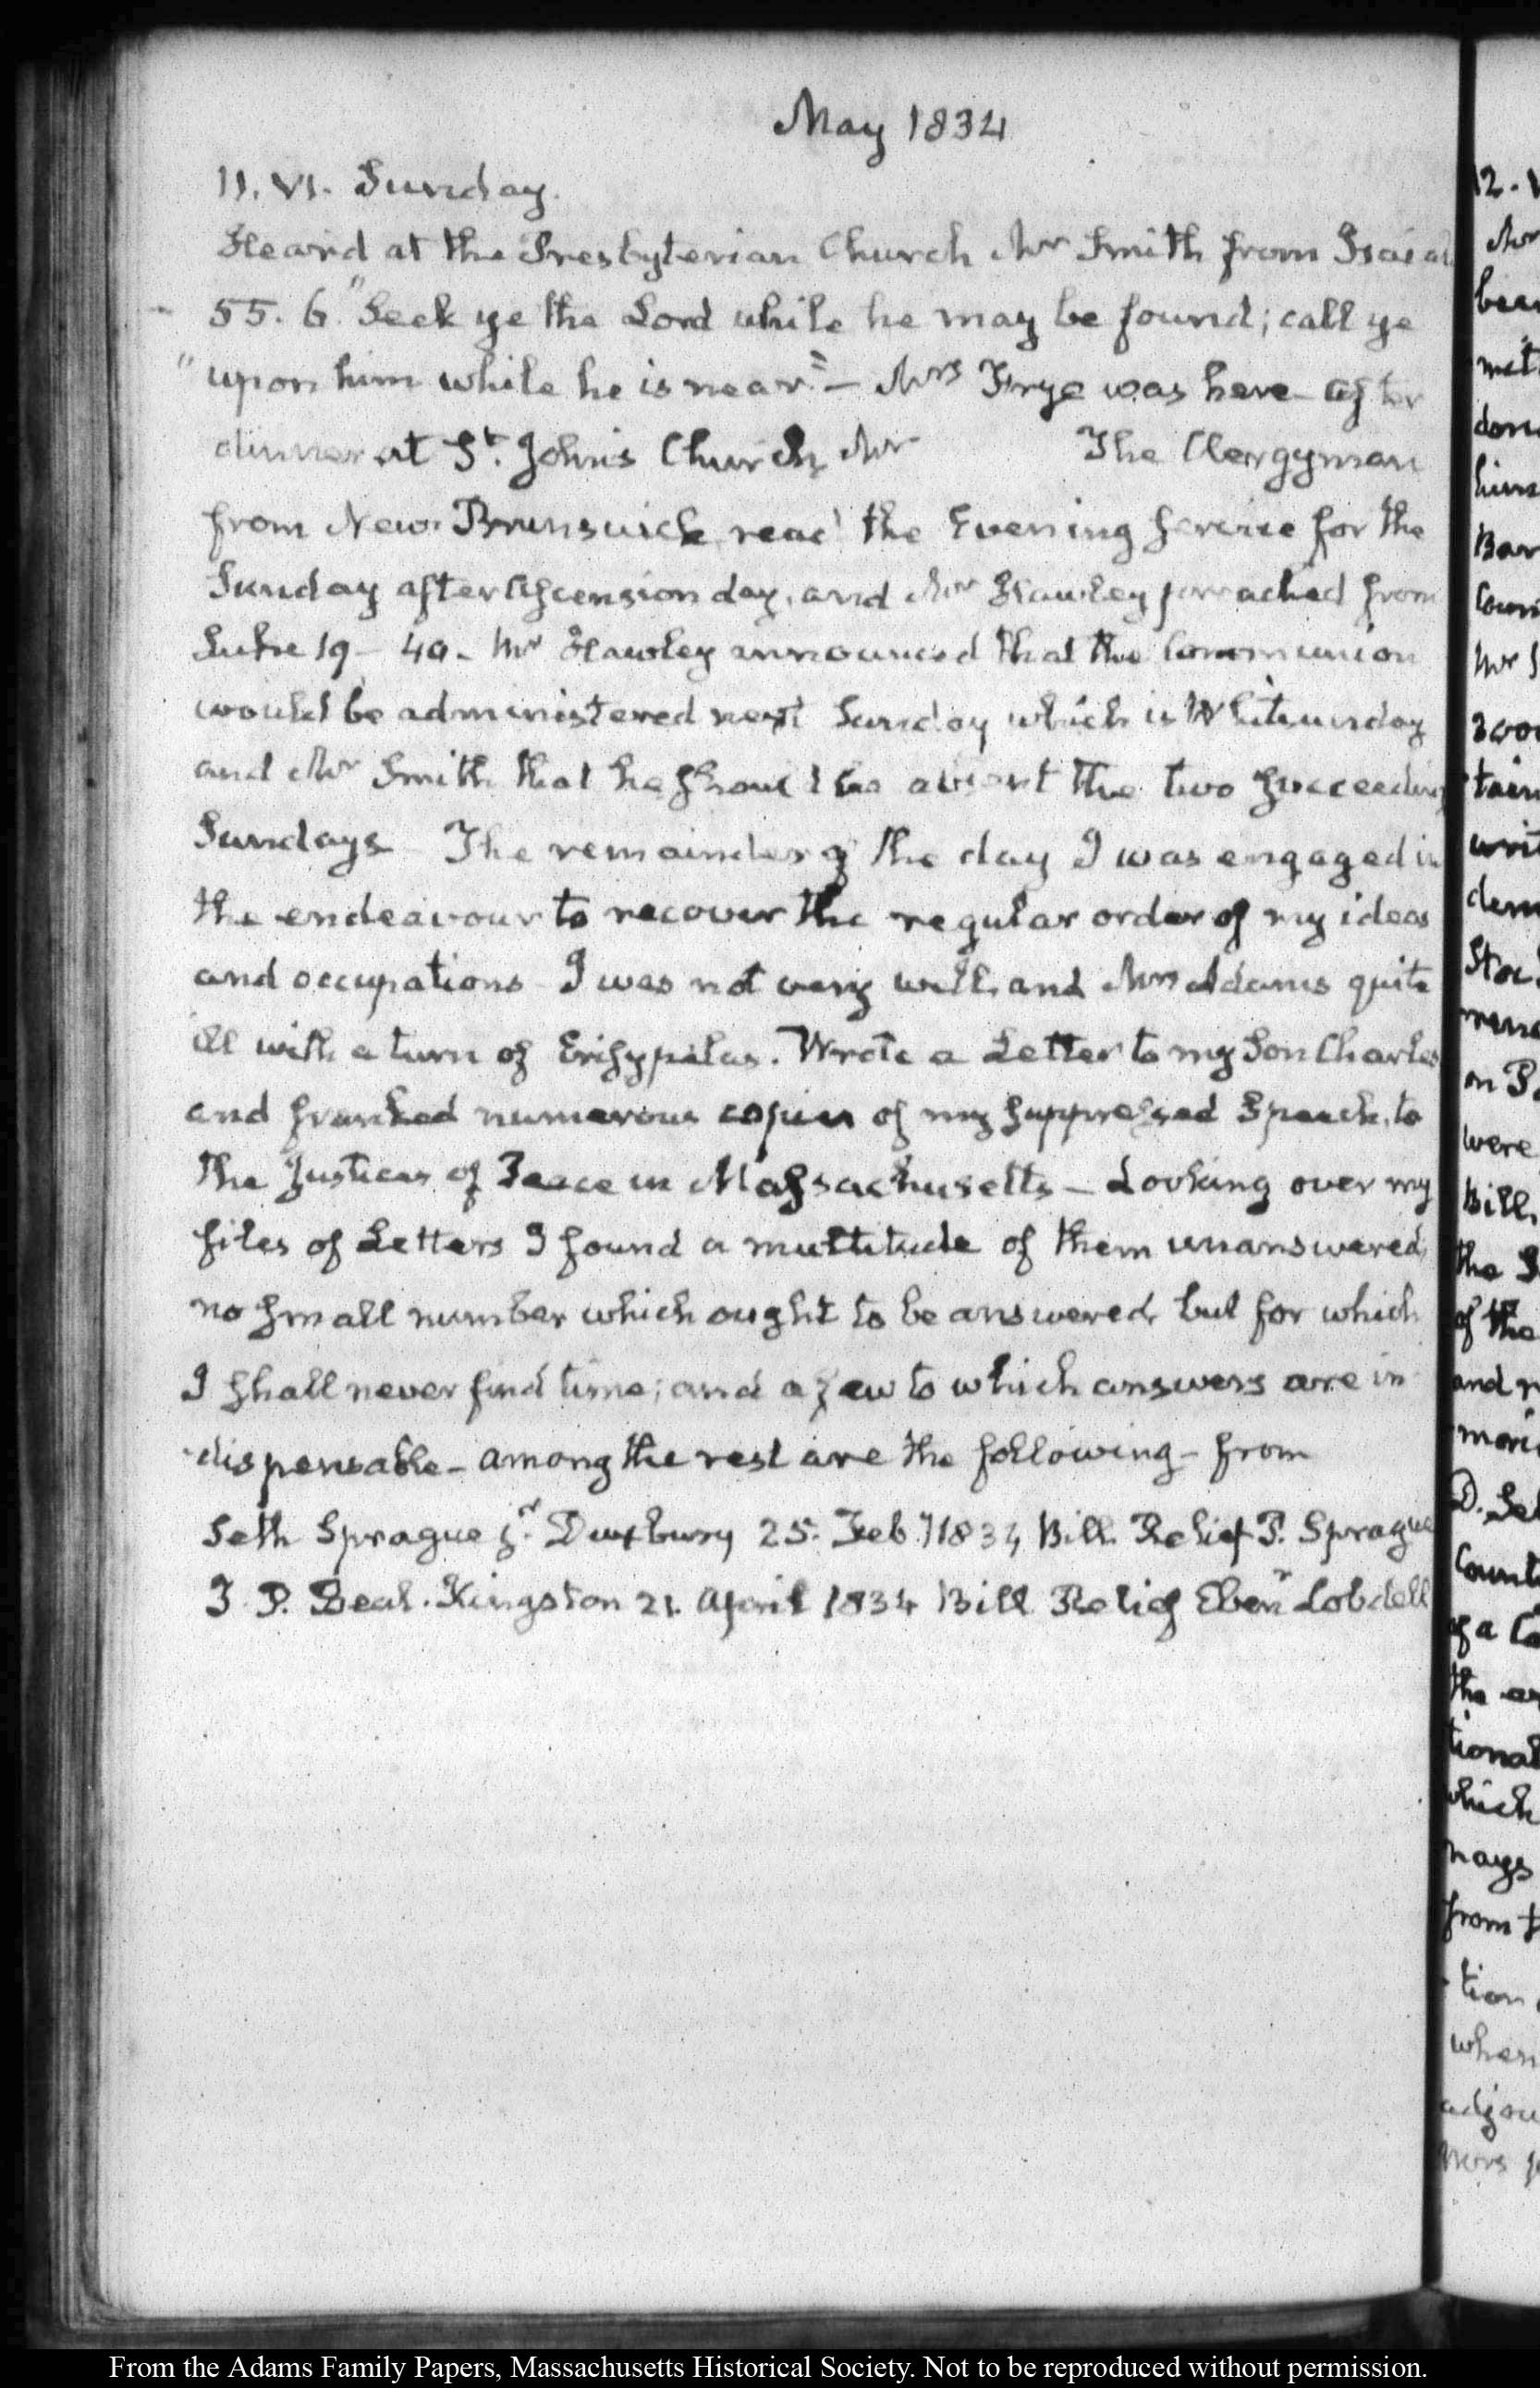 May 1834
11. VI. Sunday.
Heard at the Presbyterian Church Mr Smith from Isaiah
55. 6. "Seek ye the Lord while he may be found; call ye
"upon him while he is near." — Mrs Frye was here — after
dinner at St. John's Church Mr The Clergyman
from New Brunswick read the Evening service for the
Sunday after Ascension day, and Mr Hawley preached from
Luke 19 - 40. Mr Hawley announced that the Communion
would be administered next Sunday which is Whitsunday
and Mr Smith that he should be absent the two succeeding
Sundays — The remainder of the day I was engaged in
the endeavour to recover the regular order of my ideas
and occupations — I was not very well, and Mrs Adams quite
ill with a turn of Erisypelas. Wrote a Letter to my Son Charles
and franked numerous copies of my suppressed Speech, to
the Justices of Peace in Massachusetts — Looking over my
files of Letters I found a multitude of them unanswered,
no small number which ought to be answered, but for which
I shall never find time; and a few to which answers are in
-dispensable — among the rest are the following — from
Seth Sprague jr. Duxbury 25. Feb. 1834 Bill Relief P. Sprague
T. P. Beal. Kingston 21. April 1834 Bill Relief Ebenr Lobdell
12.
Mr
met
Bar
Mr
were
Bill
the
of the
and
the
which
nays
from
tion
when
From the Adams Family Papers, Massachusetts Historical Society. Not to be reproduced without permission.